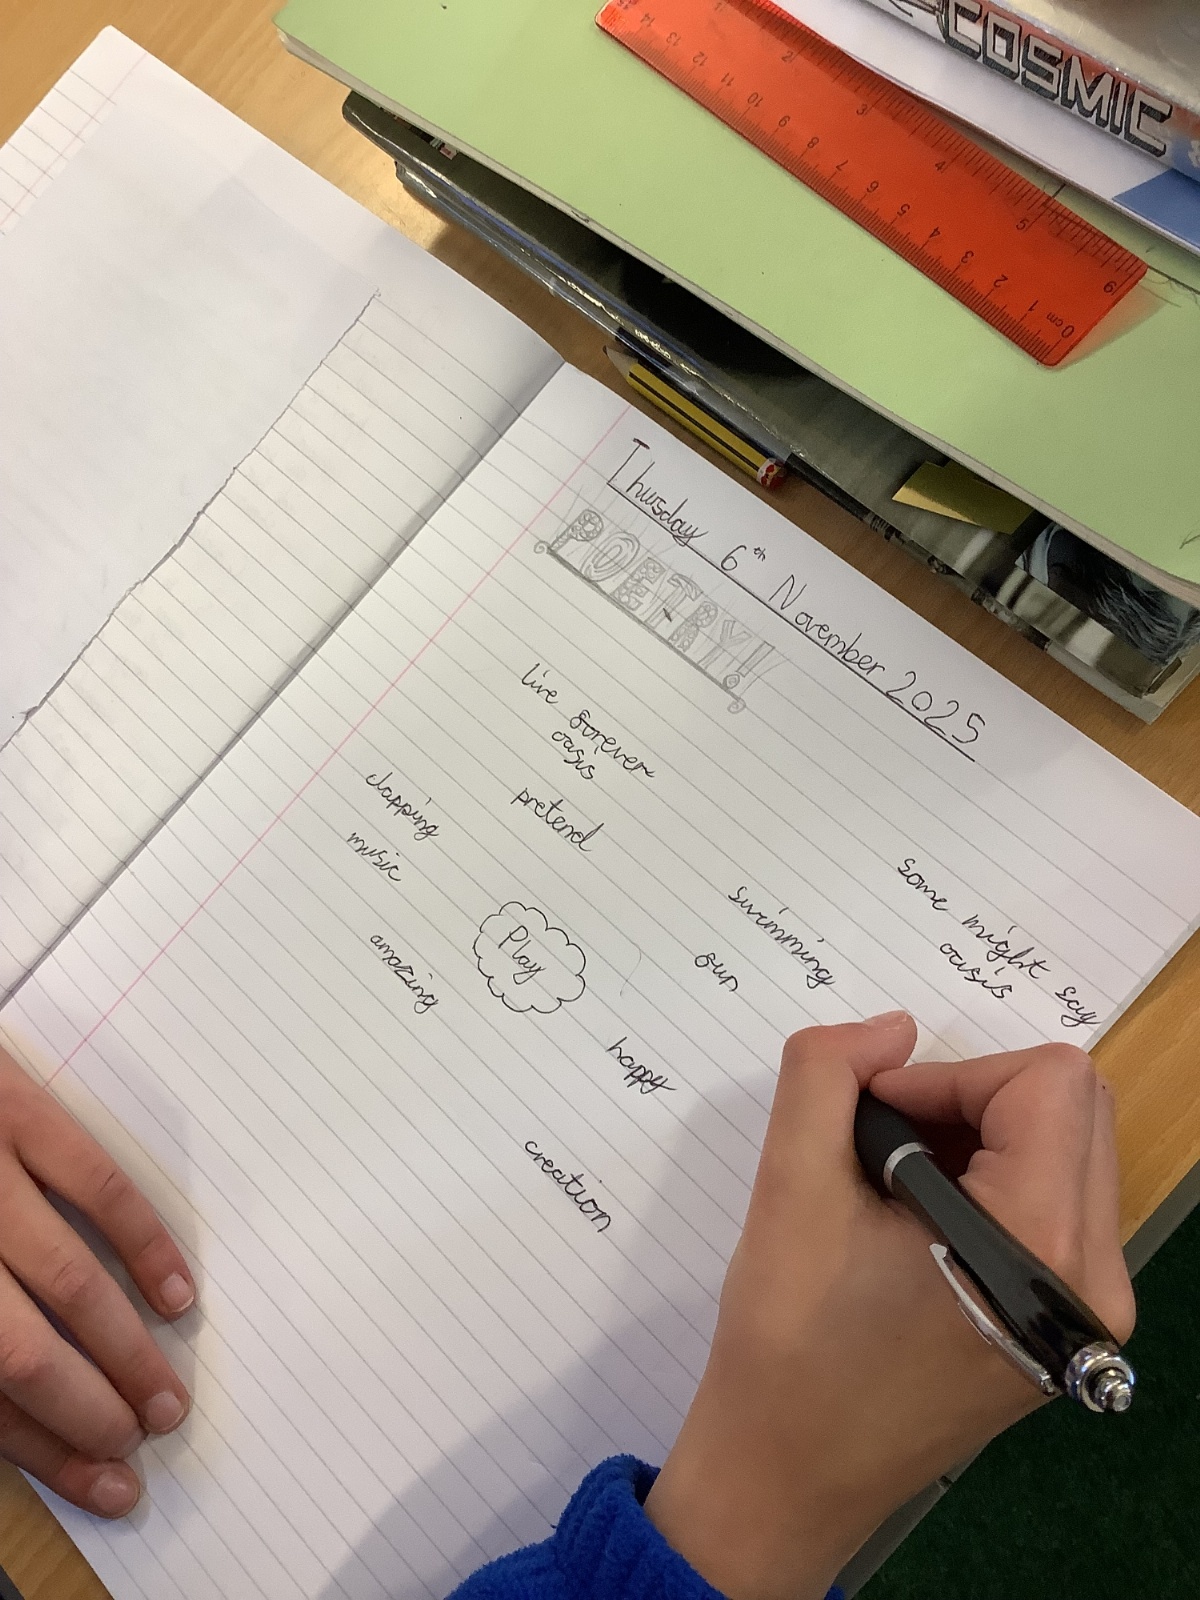 COSMIC
Thursday 6th November 2025
POETRY!
live forever
oasis
pretend
clapping
music
amazing
Play
swimming
fun
some might say
oasis
happy
creation
1 2 3 4 5 6
14 13 12 11 10 9 8 7 6 5 4 3 2 1 0 cm